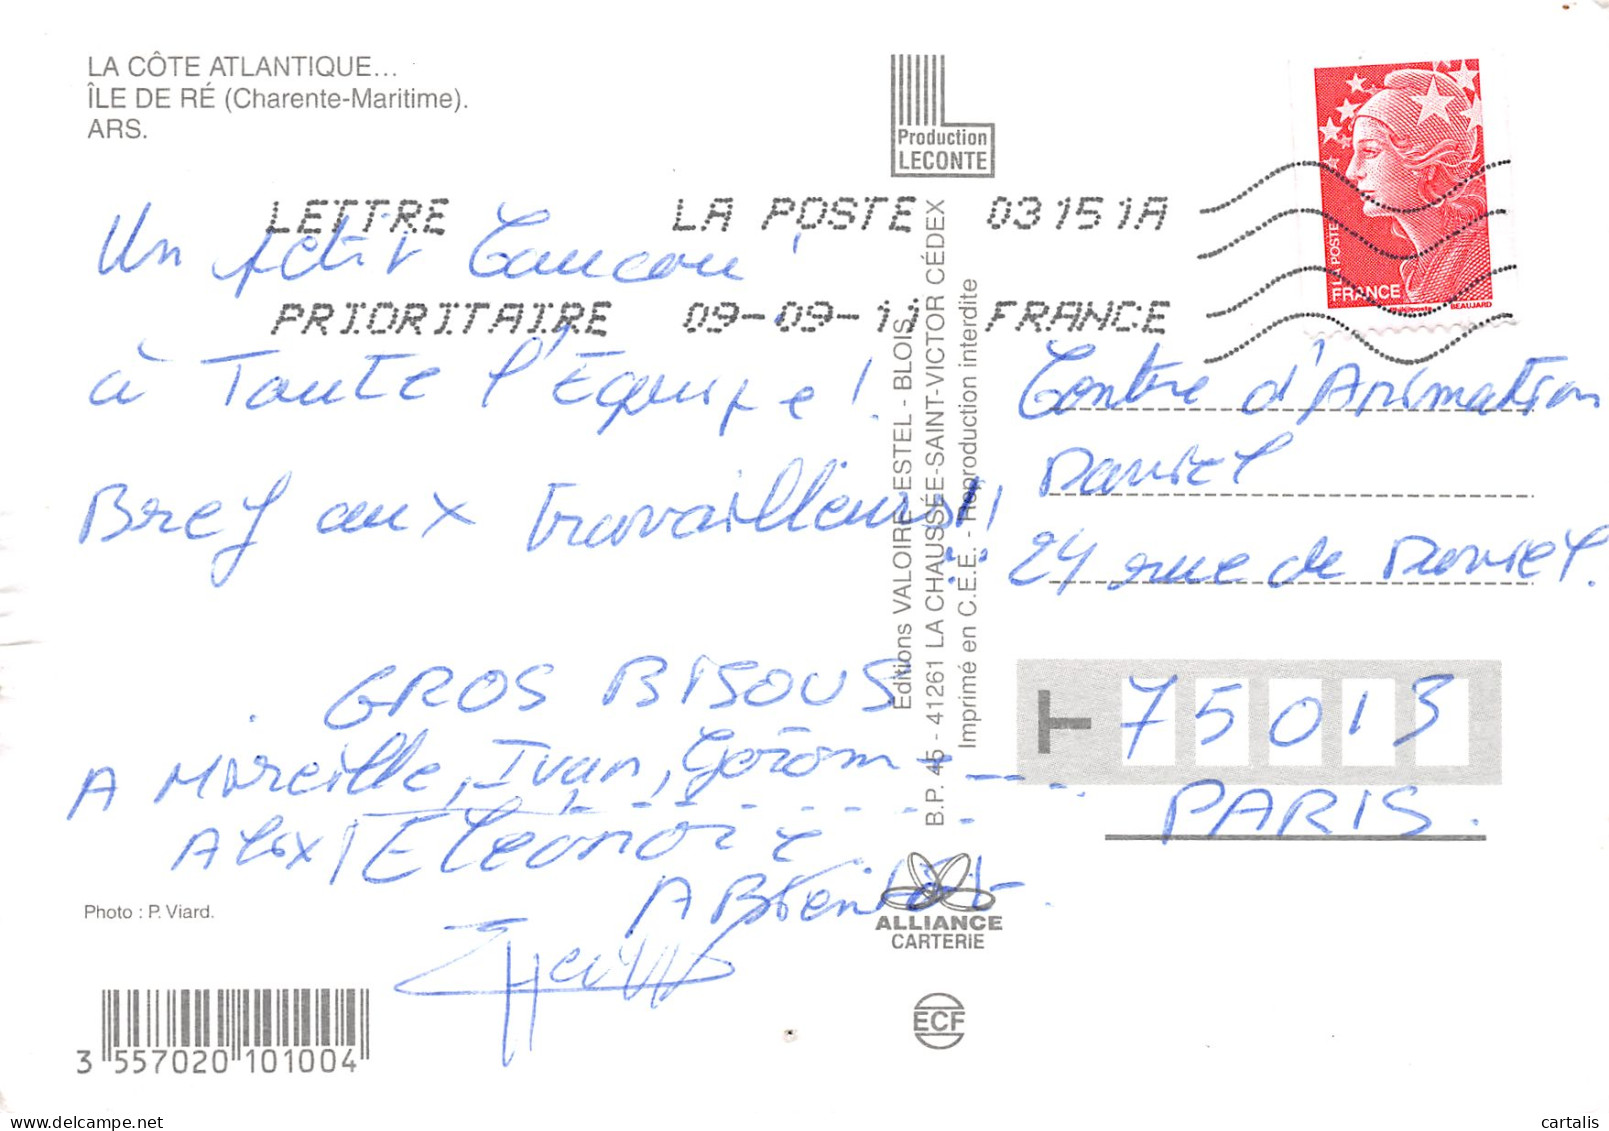 cartalis
LA CÔTE ATLANTIQUE...
ÎLE DE RÉ (Charente-Maritime).
ARS.
Production
LECONTE
LA POSTE
FRANCE
BEAUJARD
LETTRE LA POSTE 03151A
PRIORITAIRE 09-09-11 FRANCE
Un petit Coucou !
à Toute l'Équipe !
Bref aux travailleurs !!
GROS BISOUS
A Mireille, Ivan, Gérôm
Alex Eléonore
A Bientôt.
Editions VALOIRE-ESTEL - BLOIS
B.P. 45 - 41261 LA CHAUSSÉE-SAINT-VICTOR CÉDEX
Imprimé en C.E.E. - Reproduction interdite
Centre d'Animation
Daviel
24 rue de Daviel.
75013
PARIS.
Photo : P. Viard.
ALLIANCE
CARTERIE
ECF
3 557020 101004
delcampe.net
cartalis